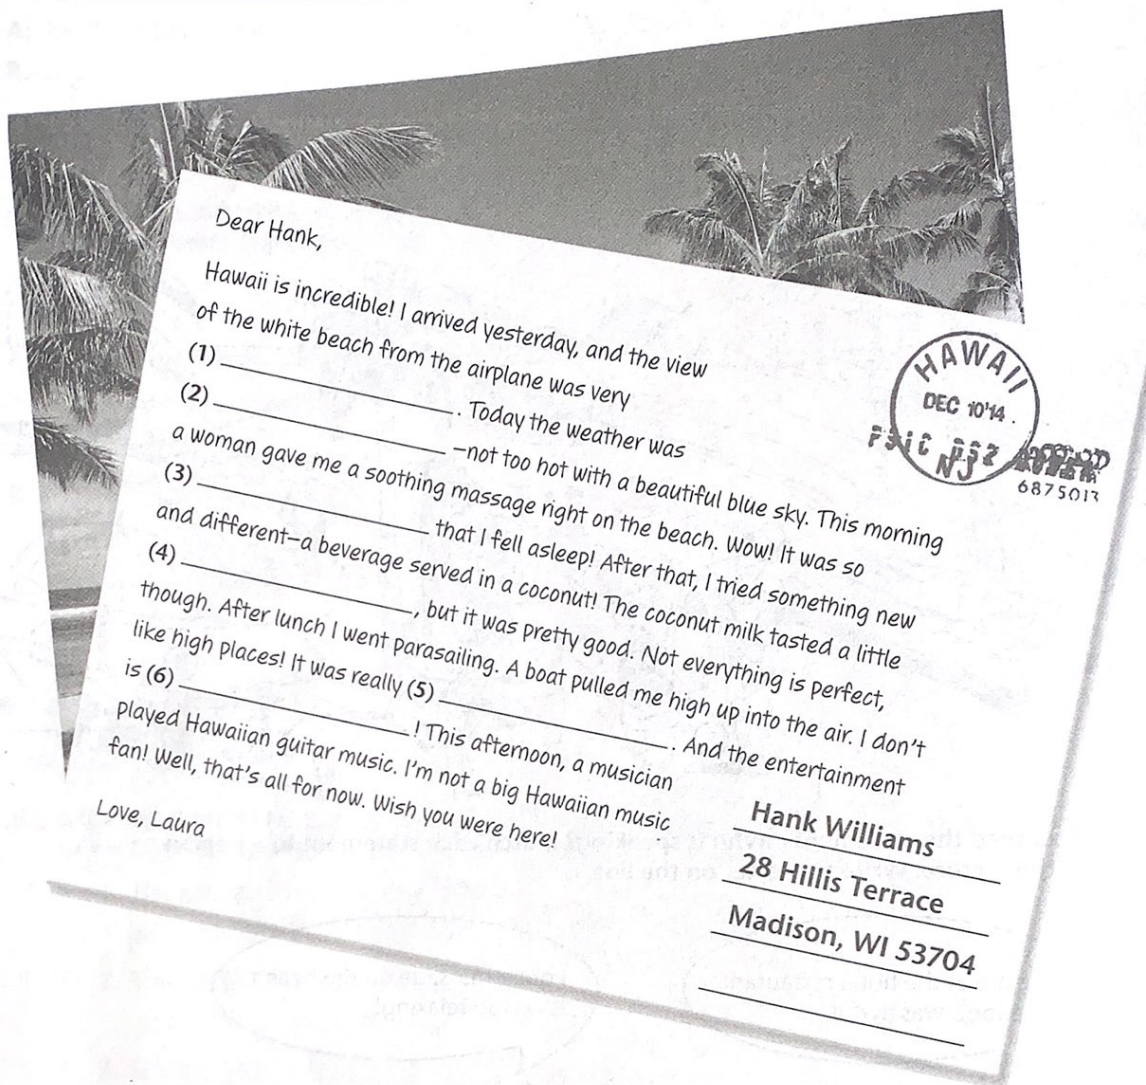 Dear Hank,
Hawaii is incredible! I arrived yesterday, and the view
of the white beach from the airplane was very
(1) ____________ . Today the weather was
(2) ____________ –not too hot with a beautiful blue sky. This morning
a woman gave me a soothing massage right on the beach. Wow! It was so
(3) ____________ that I fell asleep! After that, I tried something new
and different–a beverage served in a coconut! The coconut milk tasted a little
(4) ____________ , but it was pretty good. Not everything is perfect,
though. After lunch I went parasailing. A boat pulled me high up into the air. I don't
like high places! It was really (5) ____________ . And the entertainment
is (6) ____________ ! This afternoon, a musician
played Hawaiian guitar music. I'm not a big Hawaiian music
fan! Well, that's all for now. Wish you were here!
Love, Laura
HAWAII
DEC 10'14
NJ
6875013
Hank Williams
28 Hillis Terrace
Madison, WI 53704